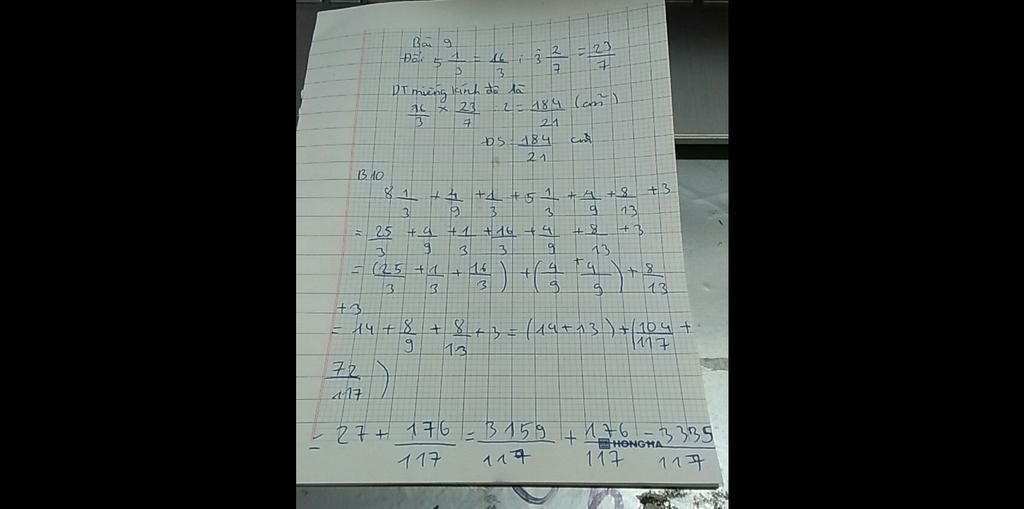 Bài 9
Đổi 5 1/3 = 16/3 ; 3 2/7 = 23/7
DT miếng kính đó là
16/3 × 23/7 : 2 = 184/21 (cm²)
ĐS 184/21 cm²
B10
8 1/3 + 4/9 + 1/3 + 5 1/3 + 4/9 + 8/13 + 3
= 25/3 + 4/9 + 1/3 + 16/3 + 4/9 + 8/13 + 3
= (25/3 + 1/3 + 16/3) + (4/9 + 4/9) + 8/13
+ 3
= 14 + 8/9 + 8/13 + 3 = (14 + 13) + (104/117 +
72/117)
= 27 + 176/117 = 3159/117 + 176/117 = 3335/117
HONG HA